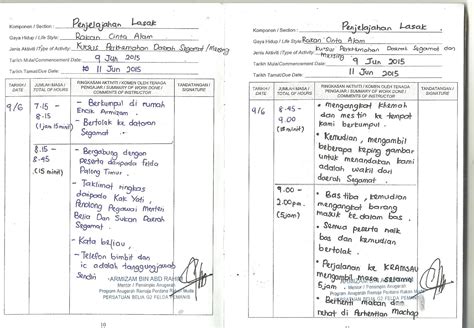 Komponen / Section : Penjelajahan Lasak
Gaya Hidup / Life Style: Rakan Cinta Alam
Jenis Aktiviti / (Type of Activity): Kursus Perkhemahan Daerah Segamat / Mersing
Tarikh Mula/Commencement Date: 9 Jun 2015
Tarikh Tamat/Due Date: 11 Jun 2015
TARIKH / DATE
JUMLAH MASA / TOTAL OF HOURS
RINGKASAN AKTIVITI / KOMEN OLEH TENAGA PENGAJAR / SUMMARY OF WORK DONE / COMMENTS OF INSTRUCTOR
TANDATANGAN / SIGNATURE
9/6
7.15 -
8.15
(1 jam 15minit)
- Berkumpul di rumah
Encik Armizam.
- Bertolak ke dataran
Segamat.
8.15 -
8.45
(15 minit)
- Bergabung dengan
peserta daripada Felda
Palong Timur.
- Taklimat ringkas
daripada Kak Yati,
Penolong Pegawai Menteri
Belia Dan Sukan Daerah
Segamat
- Kata beliau,
- Telefon bimbit dan
ic adalah tanggungjawab
sendiri
ARMIZAM BIN ABD RAHIM
Mentor / Pemimpin Anugerah
Program Anugerah Remaja Perdana Rakan Muda
PERSATUAN BELIA G2 FELDA PEMANIS
Komponen / Section : Penjelajahan Lasak
Gaya Hidup / Life Style: Rakan Cinta Alam
Jenis Aktiviti / (Type of Activity): Kursus Perkhemahan Daerah Segamat dan
Mersing
Tarikh Mula/Commencement Date: 9 Jun 2015
Tarikh Tamat/Due Date: 11 Jun 2015
TARIKH / DATE
JUMLAH MASA / TOTAL OF HOURS
RINGKASAN AKTIVITI / KOMEN OLEH TENAGA PENGAJAR / SUMMARY OF WORK DONE / COMMENTS OF INSTRUCTOR
TANDATANGAN / SIGNATURE
9/6
8.45 -
9.00
(15 minit)
• mengangkat khemah
dan mestin ke tempat
kami berkumpul.
• Kemudian, mengambil
beberapa keping gambar
untuk menandakan kami
adalah wakil dari
daerah Segamat.
9.00 -
2.00pm.
(5jam)
• Bas tiba, kemudian
mengangkat barang
masuk ke dalam bas.
• Semua peserta naik
bas dan kemudian
bertolak.
• Perjalanan ke
mengambil masa selama
5jam
• Berhenti makan dan
rehat di Perhentian Machap
ARMIZAM BIN ABD RAHIM
Mentor / Pemimpin Anugerah
Program Anugerah Remaja Perdana Rakan Muda
PERSATUAN BELIA G2 FELDA PEMANIS